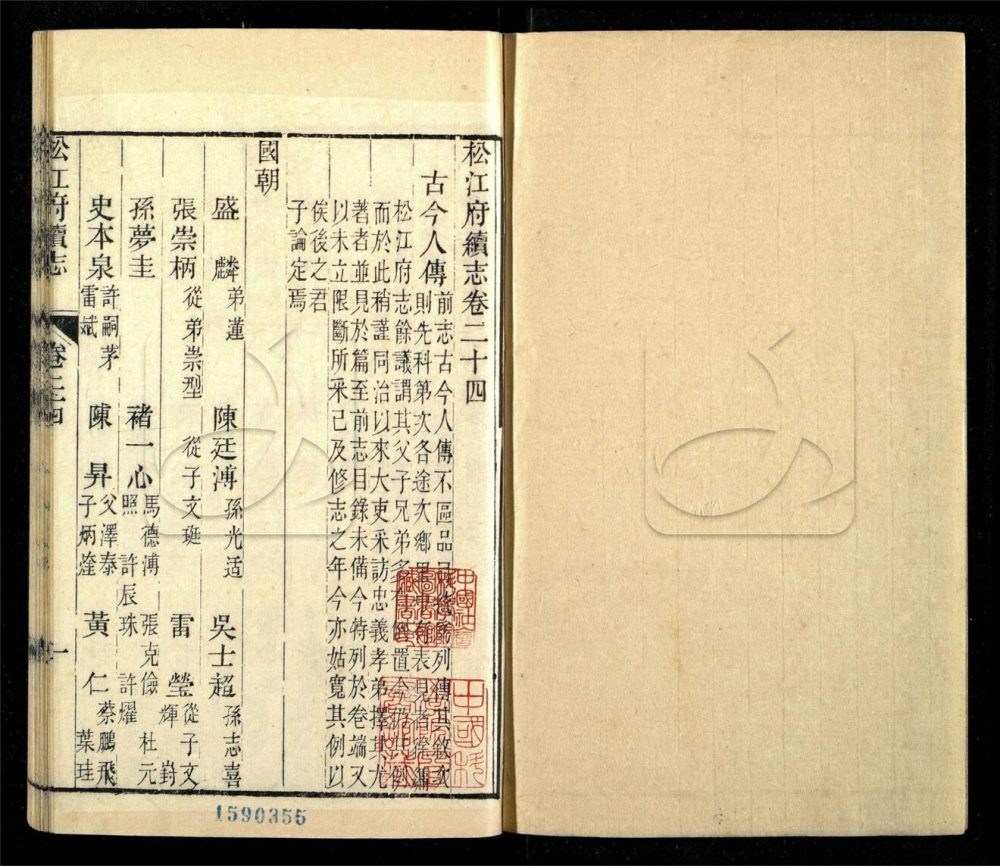 松江府續志卷二十四
古今人傳前志古今人傳不區品目統歸列傳其敘次
則先科第次各途次鄉里中有表見者徐編
松江府志餘議謂其父子兄弟多有倒置今仍其例
而於此稍謹同治以來大吏采訪忠義孝弟擇其尤
著者並見於篇至前志目錄未備今特列於卷端又
以未立限斷所采已及修志之年今亦姑寬其例以
俟後之君
子論定焉
國朝
盛麟弟蓮 陳廷溥孫光适 吳士超孫志喜
張崇柄從弟崇型 從子文珽 雷瑩從子文輝 崶
孫夢圭 褚一心馬德溥 照 許辰珠 張克儉 許燿 杜元
史本泉許嗣茅 雷斌 陳昇父澤泰 子炳煃 黃仁蔡鵬飛 葉珪
松江府續志 卷二十四 一
1590355